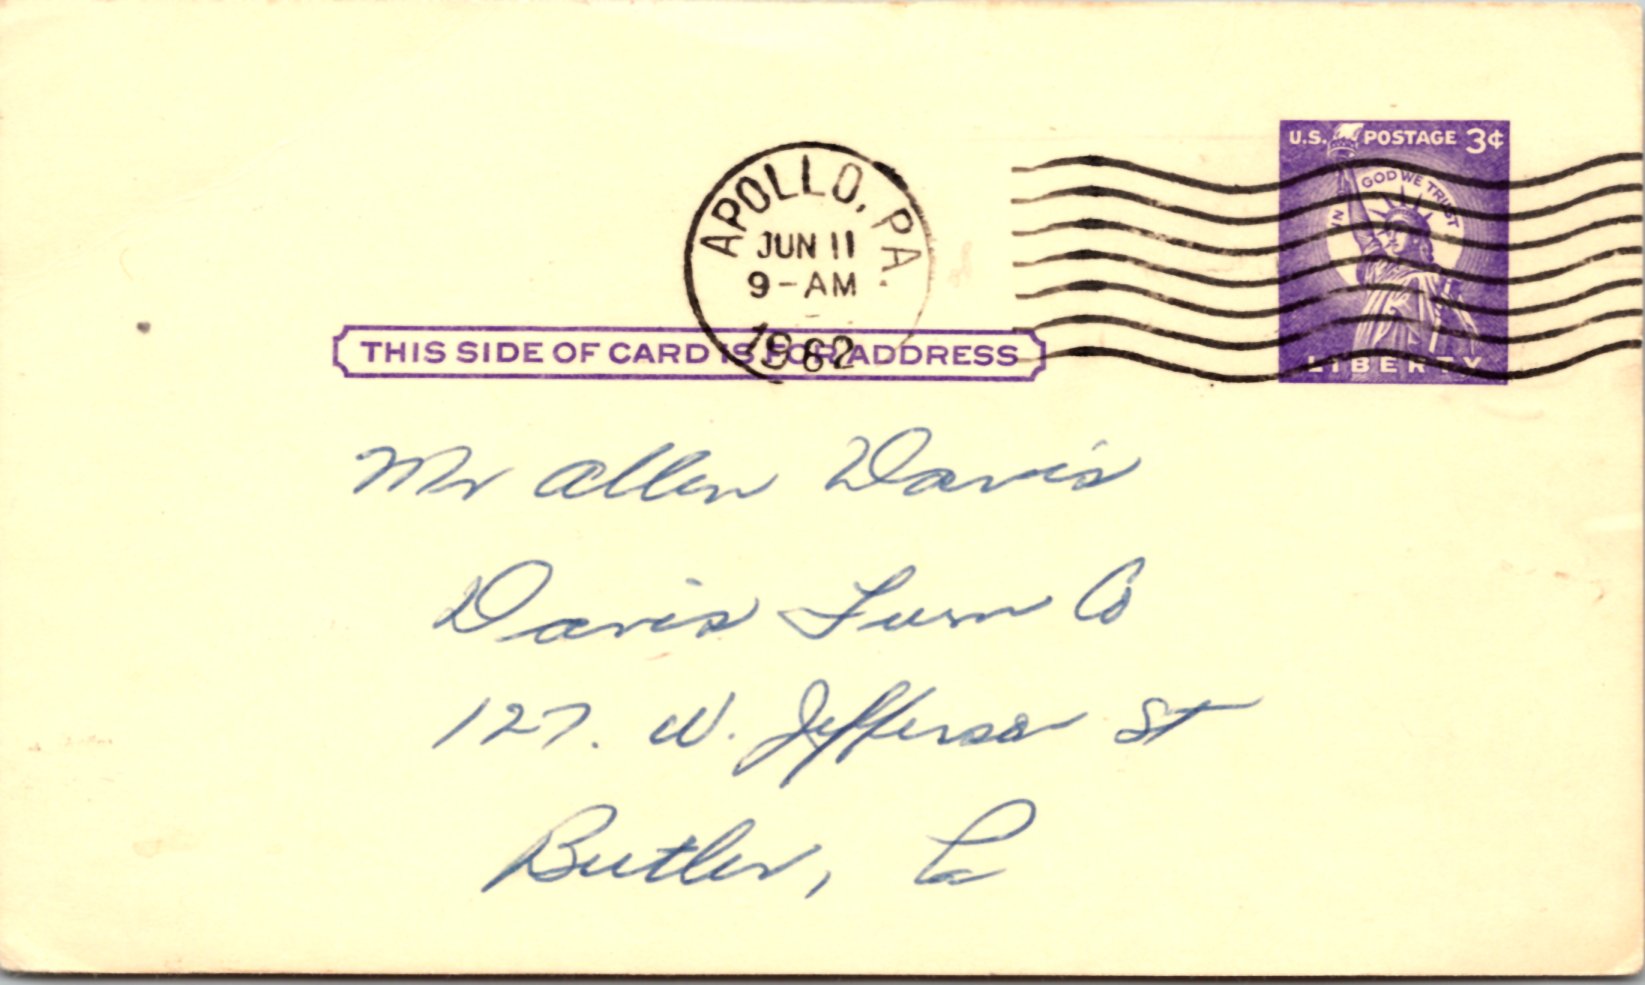 U.S. POSTAGE 3¢
IN GOD WE TRUST
LIBERTY
APOLLO, PA.
JUN 11
9-AM
1962
THIS SIDE OF CARD IS FOR ADDRESS
Mr Allen Davis
Davis Furn Co
127. W. Jefferson St
Butler, Pa